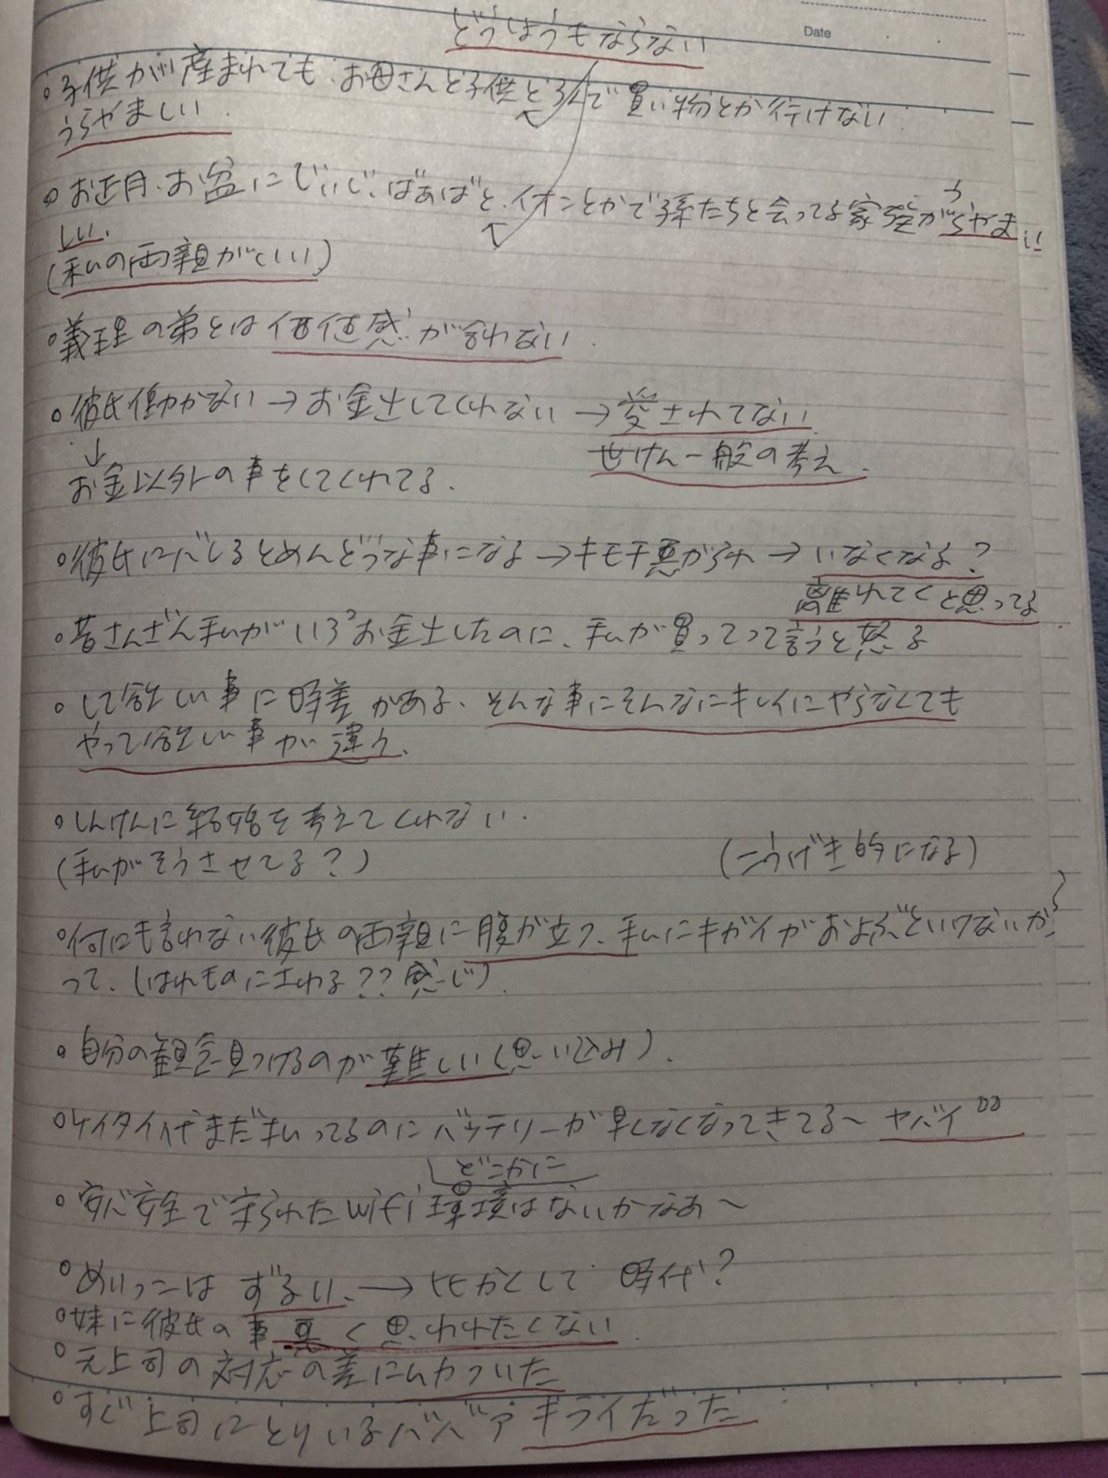 どうしようもならない
Date
。子供が産まれても、お母さんと子供と3人で買い物とか行けない
うらやましい
。お正月、お盆にじいじ、ばあばと、イオンとかで孫たちと会ってる家族がうらやま
しい。
(私の両親がいい)
。義理の弟とは価値感が合わない
。彼氏働かない→お金出してくれない→愛されてない
↓ せけん一般の考え
お金以外の事をしてくれてる。
。彼氏にバレるとめんどうな事になる→キモチ悪がられ→いなくなる?
離れてくと思ってる
。昔さんざん私がいろいろお金出したのに、私が買ってって言うと怒る
。して欲しい事に時差がある、そんな事にそんなにキレイにやらなくても
やって欲しい事が違う。
。しんけんに結婚を考えてくれない。
(私がそうさせてる?) (こうげき的になる)
。何にも言わない彼氏の両親に腹が立つ、私にキガイがおよぶといけないから
って、(はれものにさわる??感じ)
。自分の観念見つけるのが難しい(思い込み)。
。ケイタイ代まだ払ってるのにバッテリーが早くなくなってきてる〜ヤバイ
どこかに
。安心安全で守られたwifi環境はないかなあ〜
。めいっこはずるい。→ヒガとして 時代?
。妹に彼氏の事悪く思われたくない
。元上司の対応の差にムカついた
。すぐ上司にとりいるババアキライだった